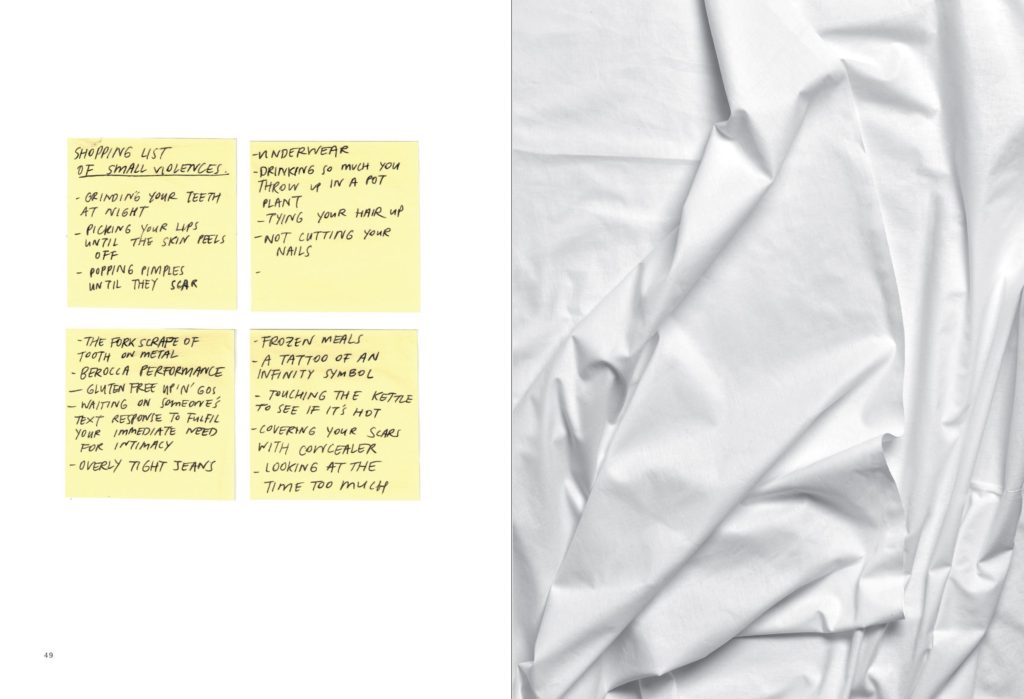 SHOPPING LIST
OF SMALL VIOLENCES.
- GRINDING YOUR TEETH
AT NIGHT
- PICKING YOUR LIPS
UNTIL THE SKIN PEELS
OFF
- POPPING PIMPLES
UNTIL THEY SCAR
- UNDERWEAR
- DRINKING SO MUCH YOU
THROW UP IN A POT
PLANT
- TYING YOUR HAIR UP
- NOT CUTTING YOUR
NAILS
-
- THE FORK SCRAPE OF
TOOTH ON METAL
- BEROCCA PERFORMANCE
- GLUTEN FREE UP'N'GOS
- WAITING ON SOMEONE'S
TEXT RESPONSE TO FULFIL
YOUR IMMEDIATE NEED
FOR INTIMACY
- OVERLY TIGHT JEANS
- FROZEN MEALS
- A TATTOO OF AN
INFINITY SYMBOL
- TOUCHING THE KETTLE
TO SEE IF IT'S HOT
- COVERING YOUR SCARS
WITH CONCEALER
- LOOKING AT THE
TIME TOO MUCH
49